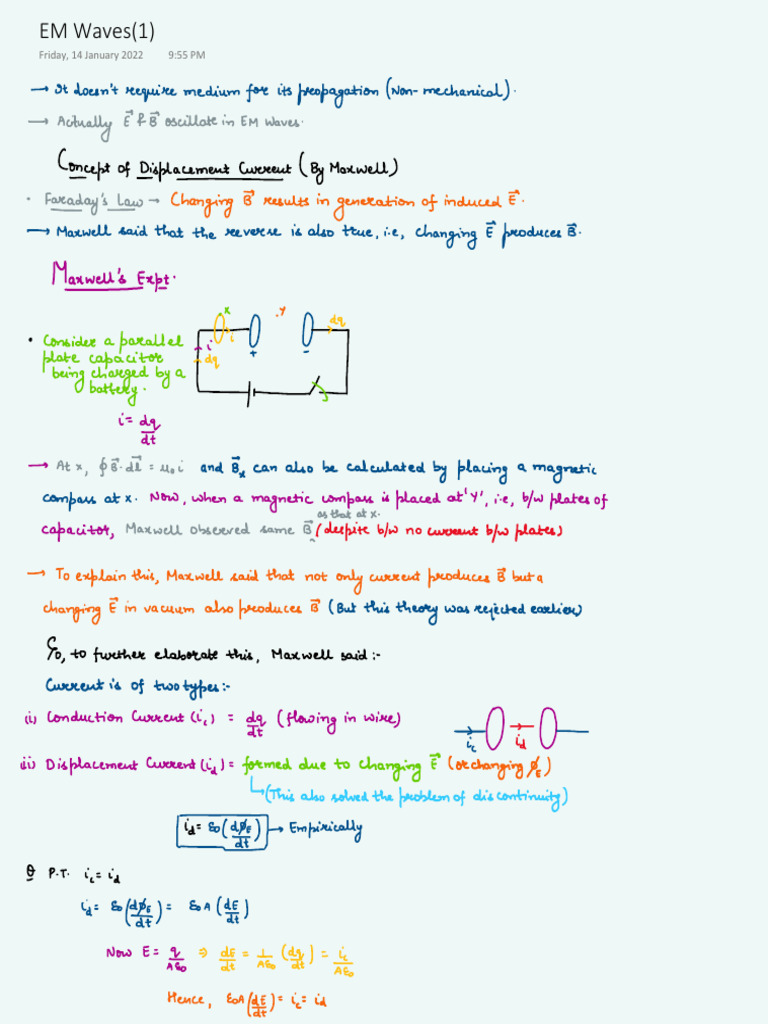 EM Waves(1)
Friday, 14 January 2022 9:55 PM
→ It doesn't require medium for its propagation (Non-mechanical).
→ Actually E⃗ & B⃗ oscillate in EM Waves.
Concept of Displacement Current (By Maxwell)
· Faraday's Law → Changing B⃗ results in generation of induced E⃗.
→ Maxwell said that the reverse is also true, i.e, changing E⃗ produces B⃗.
Maxwell's Expt.
x .Y dq
i
+ -
i
dq
• Consider a parallel
plate capacitor
being charged by a
battery.
i = dq/dt
→ At x, ∮B⃗·dl⃗ = μ₀i and B⃗ₓ can also be calculated by placing a magnetic
compass at x. Now, when a magnetic compass is placed at 'Y', i.e, b/w plates of
as that at x.
capacitor, Maxwell observed same B⃗ (despite b/w no current b/w plates)
→ To explain this, Maxwell said that not only current produces B⃗ but a
changing E⃗ in vacuum also produces B⃗ (But this theory was rejected earlier)
So, to further elaborate this, Maxwell said :-
Current is of two types:-
(i) Conduction Current (ic) = dq/dt (flowing in wire)
ic id
(ii) Displacement Current (id) = formed due to changing E⃗ (or changing ϕE)
↳ (This also solved the problem of discontinuity)
id = ε0(dϕE/dt) → Empirically
Q P.T. ic = id
id = ε0(dϕE/dt) = ε0A(dE/dt)
Now E = q/Aε0 ⇒ dE/dt = 1/Aε0 (dq/dt) = ic/Aε0
Hence, ε0A(dE/dt) = ic = id